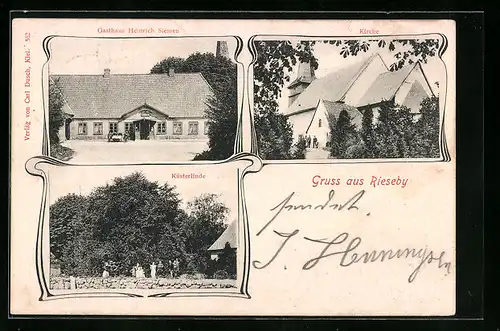 Gasthaus Heinrich Siemen
Kirche
Verlag von Carl Dusch, Kiel. 852
Küsterlinde
Gruss aus Rieseby
sendet
J. Henningsen